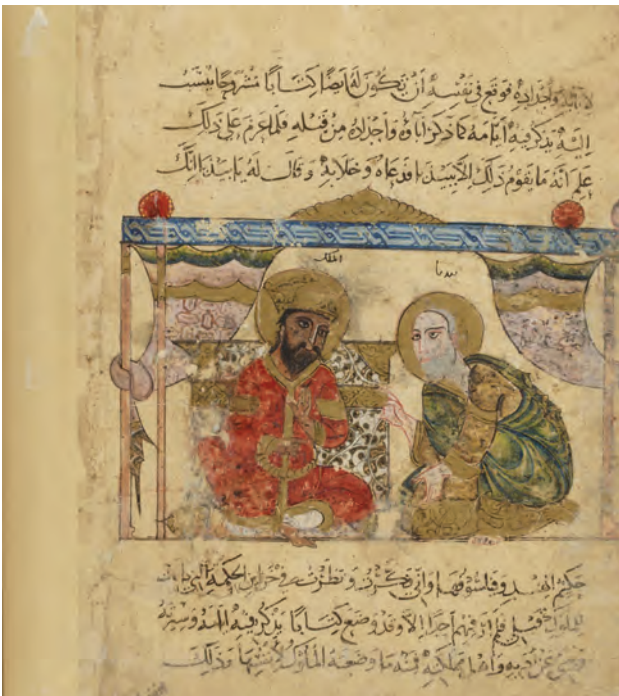 واجداده فوقع في نفسه ان يكون له ايضا كتابا مشروحا ينسب
اليه يذكر فيه ايامه كما ذكر اباؤه واجداده من قبله فلما عزم على ذلك
علم انه ما يقوم بذلك الا بيدبا فدعاه وخلا به وقال له يا بيدبا انك
الملك بيدبا
حكيم الهند وفيلسوفها واني فكرت ونظرت في خزاين الحكمة التي
قبلي فلم ار فيهم احدا الا وقد وضع كتابا يذكر فيه ايامه وسيرته
عن ادبه واهل مملكته فمنه ما وضعته الملوك لانفسها وذلك